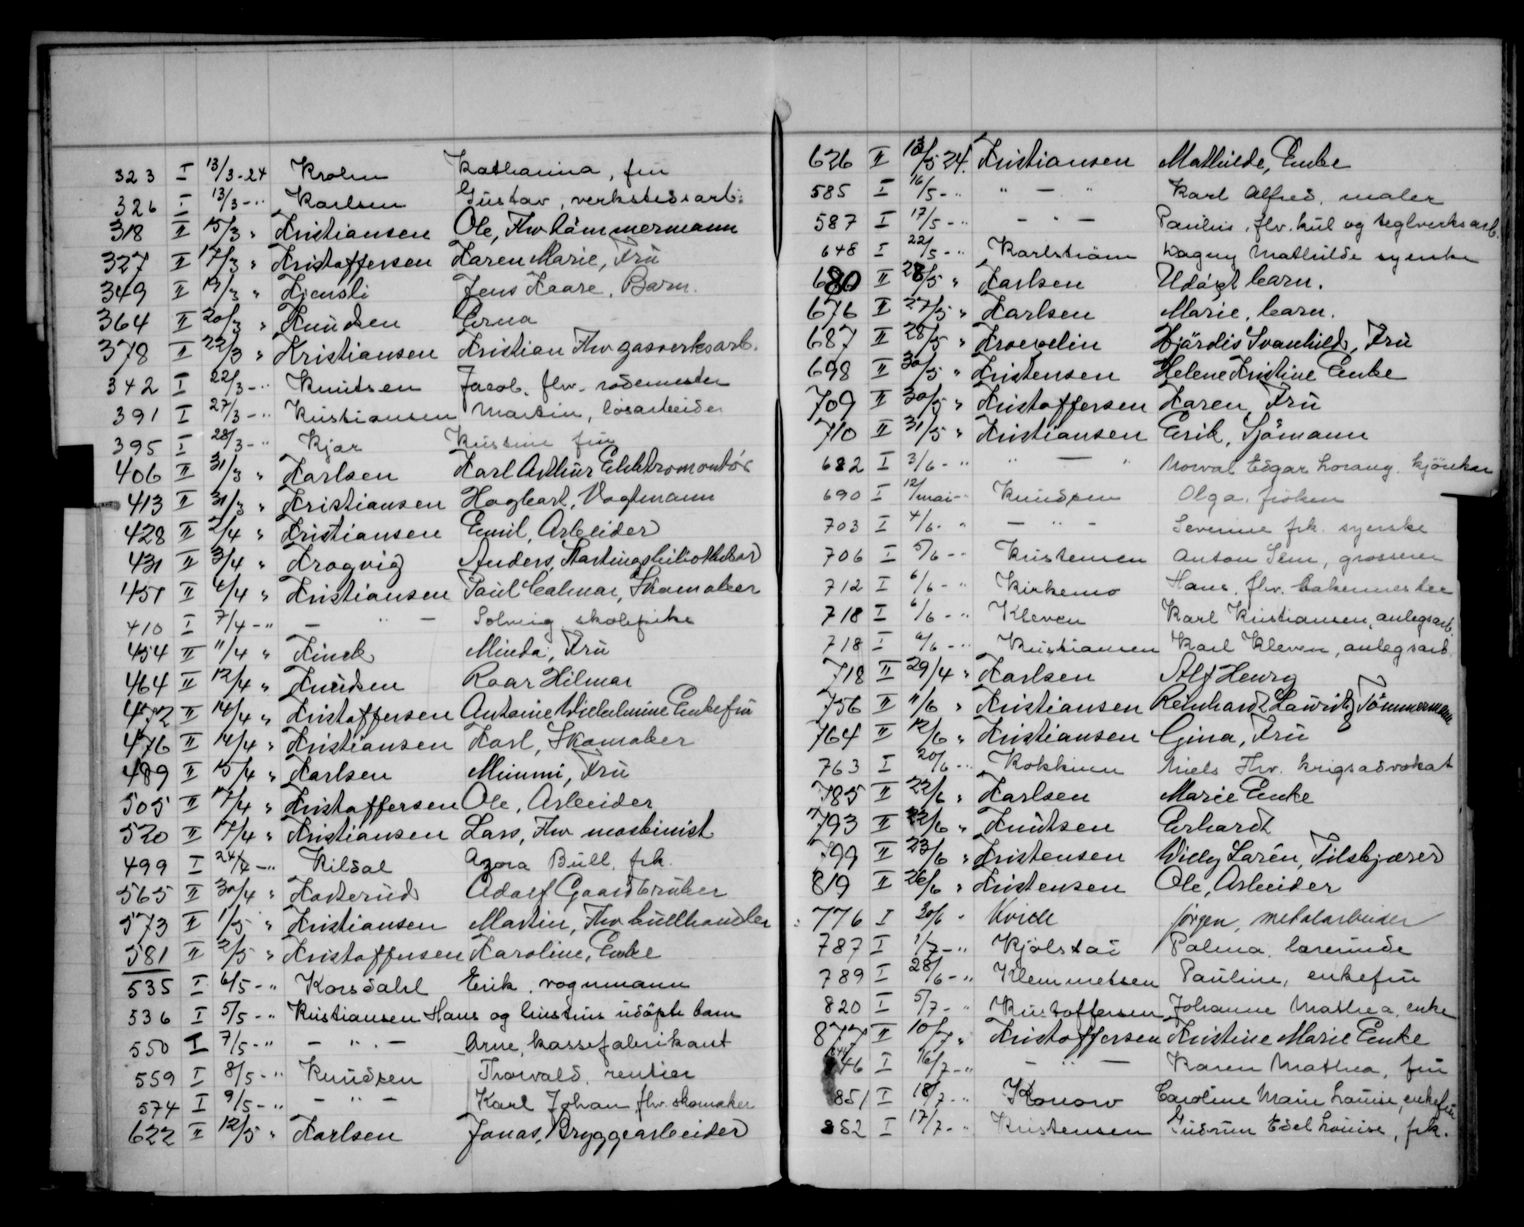 323 I 13/3-24 Krohn Katharina, fru
326 I 13/3-" Karlsen Gustav, verkstedsarb.
318 II 15/3 " Kristiansen Ole, Fhv tömmermann
327 II 17/3 " Kristoffersen Karen Marie, Fru
349 II 19/3 " Kjensli Jens Kaare, Barn.
364 II 20/3 " Knudsen Erna
378 II 22/3 " Kristiansen Kristian Fhv gasverksarb.
342 I 22/3-" Knutsen Jacob, fhv. rodemester
391 I 27/3-" Kristiansen Martin, løsarbeider
395 I 28/3-" Kjær Kristine fru
406 II 31/3 " Karlsen Karl Arthur Elektromontör
413 II 31/3 " Kristiansen Hagbart, Vagtmann
428 II 2/4 " Kristiansen Emil, Arbeider
431 II 3/4 " Kragvig Anders, Stortingsbibliothekar
451 II 6/4 " Kristiansen Paul Calmar, Skomaker
410 I 7/4-" — " — Solveig skolepike
454 II 11/4 " Kinck Minda, Fru
464 II 12/4 " Knudsen Roar Hilmar
472 II 14/4 " Kristoffersen Antonie Wilhelmine Enkefru
476 II 14/4 " Kristiansen Karl, Skomaker
489 II 15/4 " Karlsen Mimmi, Fru
505 II 17/4 " Kristoffersen Ole, Arbeider
520 II 17/4 " Kristiansen Lars, Fhv maskinist
499 I 24/4-" Kildal Agora Bull, frk.
565 II 30/4 " Kosterud Adolf Gaardbruker
573 II 1/5 " Kristiansen Martin, Fhv kullhandler
581 II 2/5 " Kristoffersen Karoline, Enke
535 I 6/5-" Korsdahl Erik, vognmann
536 I 5/5-" Kristiansen Hans og hustrus udöpte barn
550 I 7/5-" — " — Arne, kassefabrikant
559 I 8/5-" Knudsen Thorvald, rentier
574 I 9/5-" — " — Karl Johan fhv. skomaker
622 II 12/5 " Karlsen Jonas, Bryggearbeider
626 II 13/5-24. Kristiansen Mathilde, Enke
585 I 16/5-" " — " Karl Alfred, maler
587 I 17/5-" — " — Paulus, fhv. kul og teglverksarb.
648 I 22/5-" Karlstrøm Dagny Mathilde syerske
680 II 28/5 " Karlsen Udöpt barn.
676 II 27/5 " Karlsen Marie, barn.
687 II 28/5 " Kroepelin Hjördis Svanhild, Fru
698 II 30/5 " Kristensen Helene Kristine Enke
709 II 30/5 " Kristoffersen Karen, Fru
710 II 31/5 " Kristiansen Erik, Sjömann
682 I 3/6-" " — " Norval Edgar Lorang kjörekar
690 I 12/mai-" Knudsen Olga, frøken
703 I 4/6-" — " — Severine frk. syerske
706 I 5/6-" Kristensen Anton Sem, grosserer
712 I 6/6-" Kirkemo Hans, fhv. bakermester
718 I 6/6-" Kleven Karl Kristiansen, anlegsarb.
718 I 6/6-" Kristiansen Karl Kleven, anlegsarb.
718 II 29/4 " Karlsen Alf Henry
756 II 11/6 " Kristiansen Reinhardt Lauritz Tömmermann
764 II 12/6 " Kristiansen Gina, Fru
763 I 20/6-" Kokkinn Niels Fhv. krigsadvokat
785 II 22/6 " Karlsen Marie Enke
793 II 22/6 " Knutsen Erhardt
799 II 23/6 " Kristensen Willy Lorén, Filskjærer
819 II 26/6 " Kristensen Ole, Arbeider
776 I 30/6 " Kvide Jørgen, metalarbeider
787 I 1/7-" Kjölstad Palma, lærerinde
789 I 28/6-" Klemmetsen Pauline, enkefru
820 I 5/7-" Kristoffersen Johanne Mathea, enke
877 II 10/7 " Kristoffersen Kristine Marie Enke
846 I 16/7-" — " — Karen Mathea, fru
851 I 18/7-" Konow Caroline Marie Louise, enkefru
852 I 17/7-" Kristensen Gudrun Edel Louise, frk.